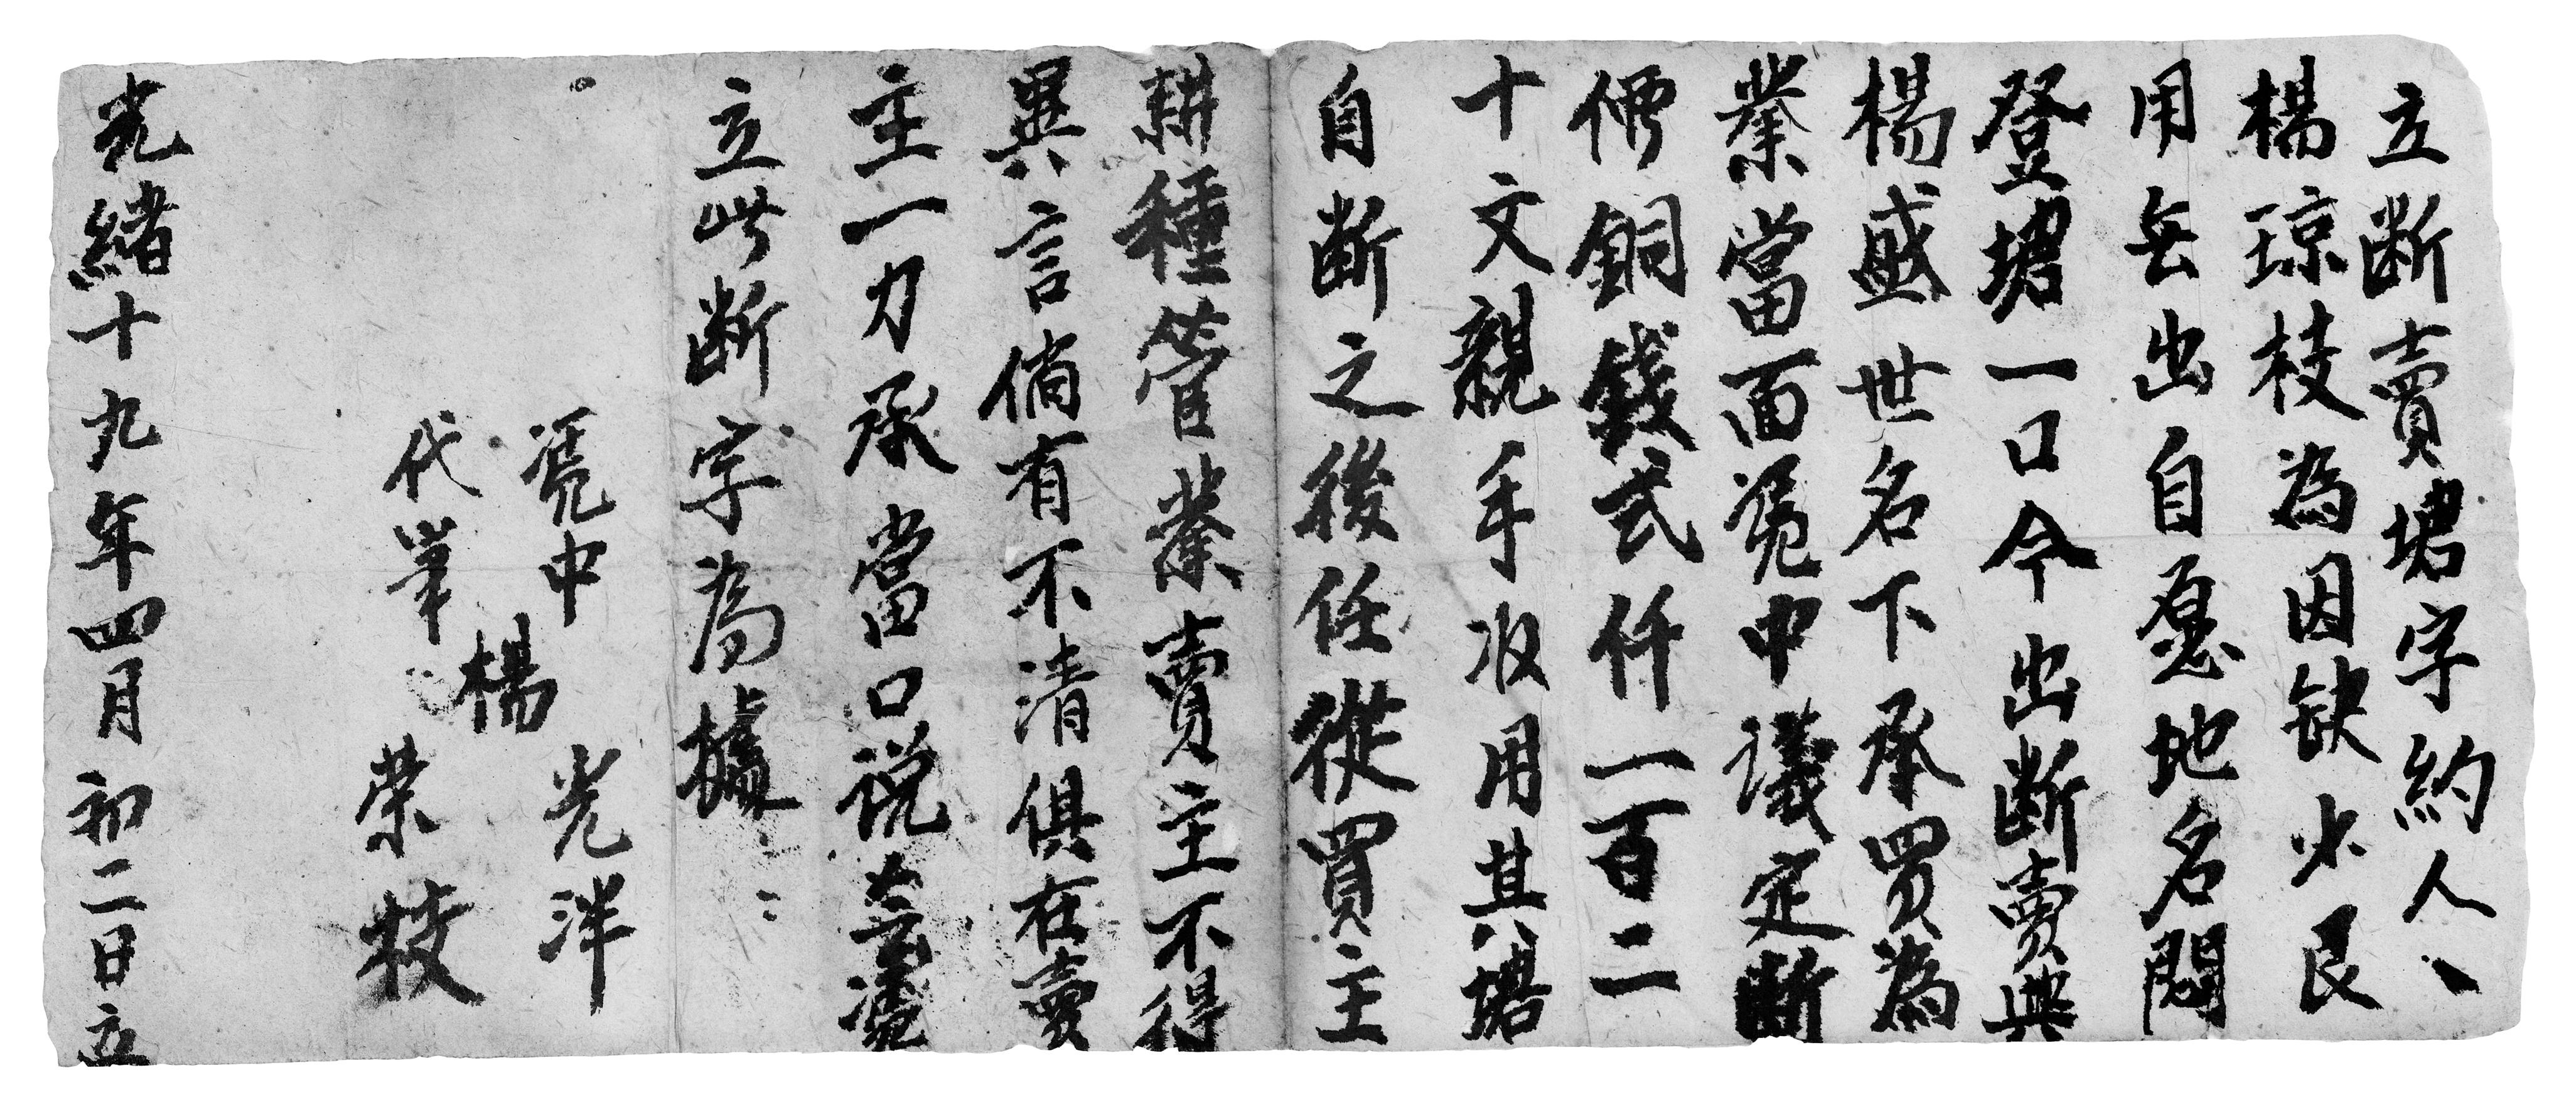 立断賣塘字約人、
楊琼枝為因缺少艮
用無出自愿地名悶
登塘一口今出断賣與
楊盛世名下承買為
業當面凴中議定断
價銅錢弍仟一百二
十文親手収用其塘
自断之後任從買主
耕種管業賣主不得
異言倘有不清俱在賣
主一力承當口説無凴
立此断字為據
凴中 楊 光洋
代筆 荣枝
光緒十九年四月初二日立